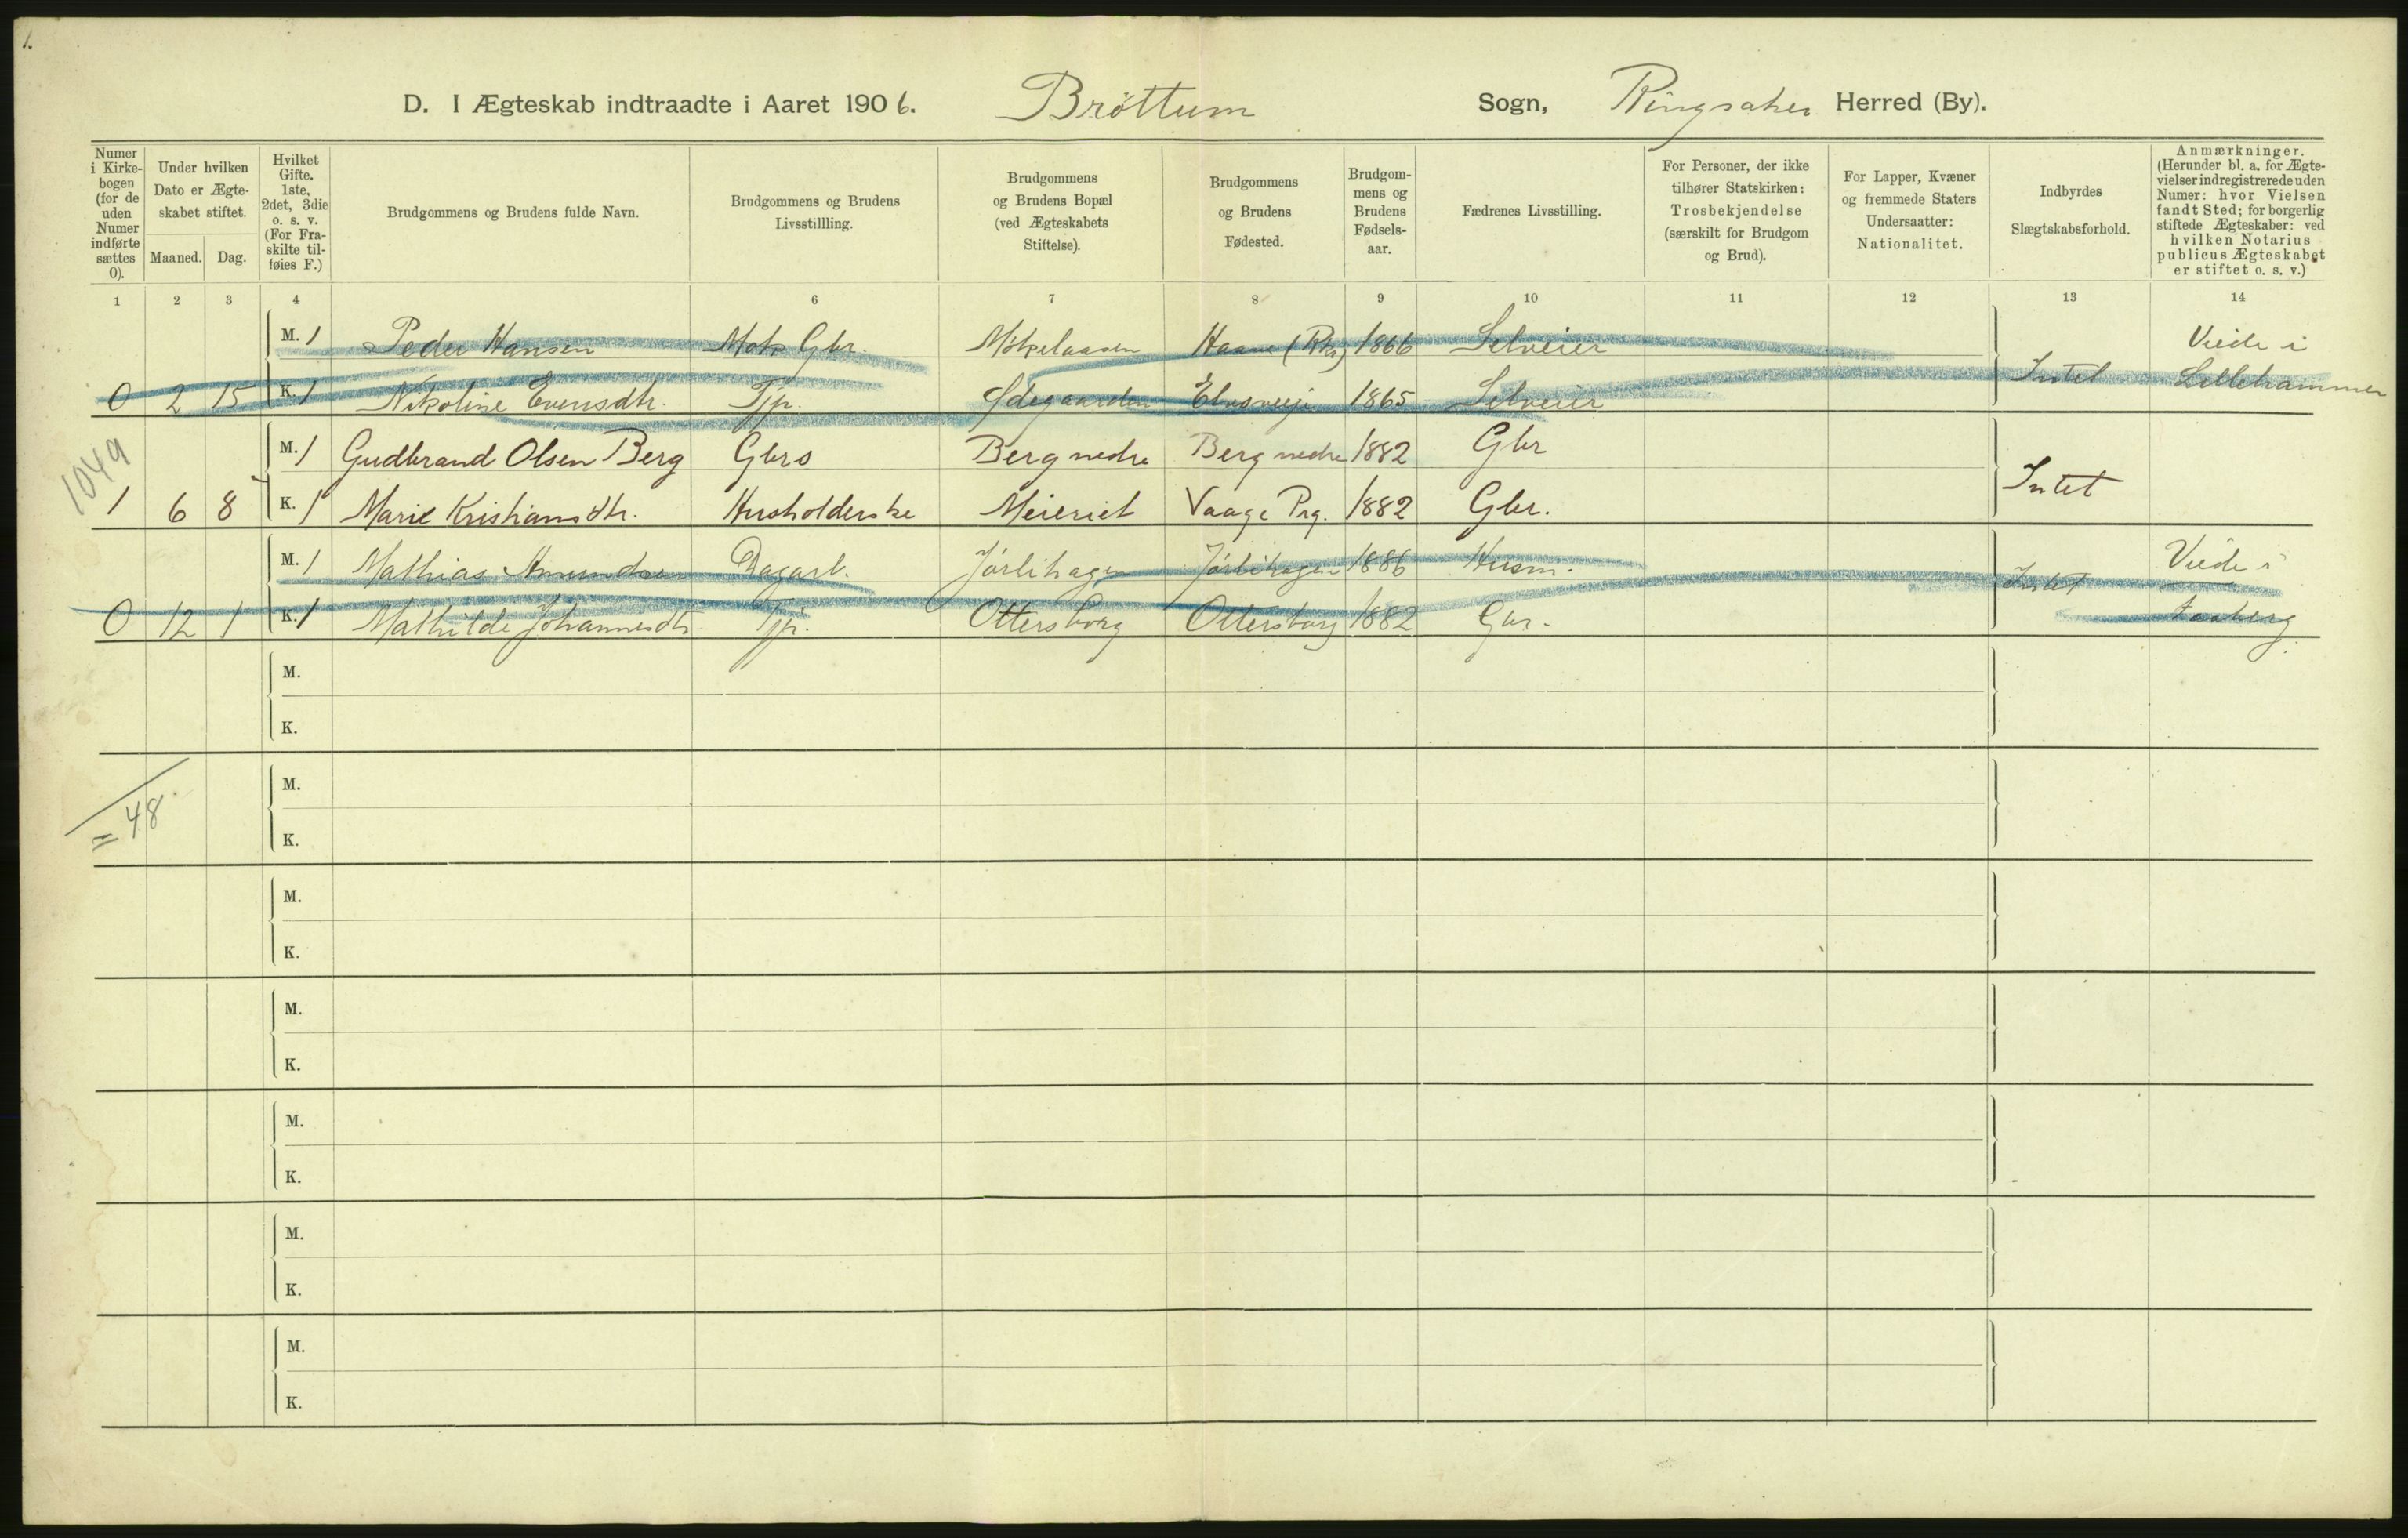 1.
D. I Ægteskab indtraadte i Aaret 1906. Brøttum Sogn, Ringsaker Herred (By).
Numer i Kirkebogen (for de uden Numer indførte sættes 0).
Under hvilken Dato er Ægteskabet stiftet.
Maaned. Dag.
Hvilket Gifte. 1ste, 2det, 3die o. s. v. (For Fraskilte tilføies F.)
Brudgommens og Brudens fulde Navn.
Brudgommens og Brudens Livsstillling.
Brudgommens og Brudens Bopæl (ved Ægteskabets Stiftelse).
Brudgommens og Brudens Fødested.
Brudgommens og Brudens Fødselsaar.
Fædrenes Livsstilling.
For Personer, der ikke tilhører Statskirken: Trosbekjendelse (særskilt for Brudgom og Brud).
For Lapper, Kvæner og fremmede Staters Undersaatter: Nationalitet.
Indbyrdes Slægtskabsforhold.
Anmærkninger. (Herunder bl. a. for Ægtevielser indregistrerede uden Numer: hvor Vielsen fandt Sted; for borgerlig stiftede Ægteskaber: ved hvilken Notarius publicus Ægteskabet er stiftet o. s. v.)
1 2 3 4 6 7 8 9 10 11 12 13 14
M. 1 Peder Hansen Gbr. 1866 Selveier Viede i
0 2 15 K. 1 Nikoline Evensdtr. Tjp. Ødegaarden 1865 Selveier Intet Lillehammer
1049
M. 1 Gudbrand Olsen Berg Gbrs Berg nedre Berg nedre 1882 Gbr
1 6 8 K. 1 Marie Kristiansdtr. Husholderske Meieriet Vaage Prg. 1882 Gbr. Intet
M. 1 Mathias Amundsen Dagarb. Jørlihagen Jørlihagen 1886 Husm. Viede i
0 12 1 K. 1 Mathilde Johannesdtr. Tjp. Ottersborg Ottersborg 1882 Gbr. Intet Faaberg.
M.
K.
M.
= 48
K.
M.
K.
M.
K.
M.
K.
M.
K.
M.
K.